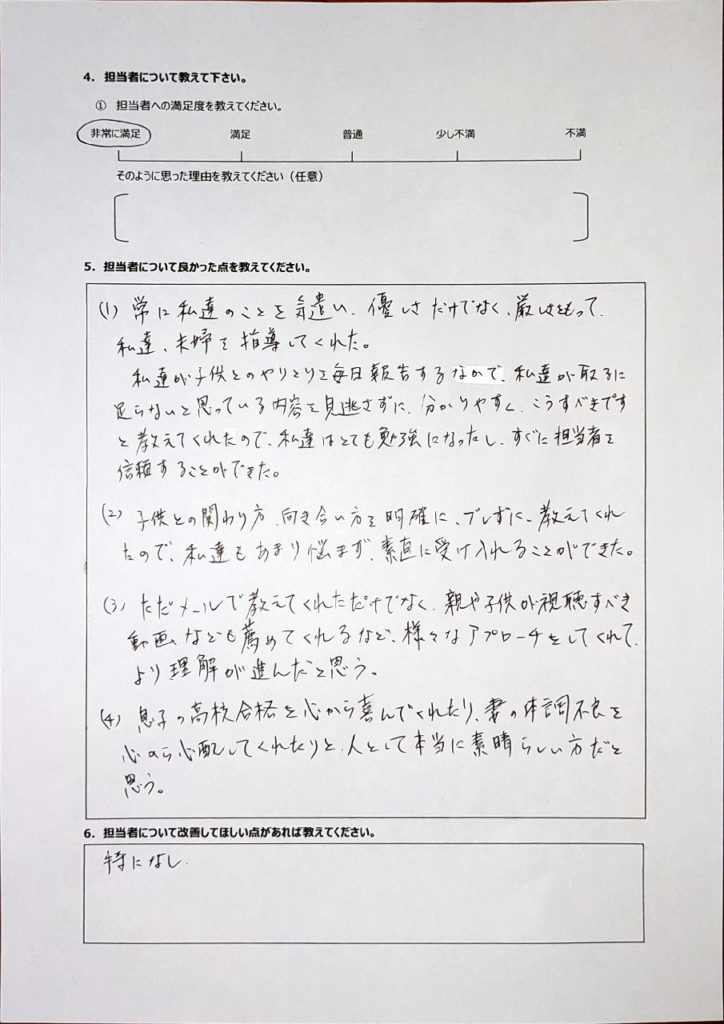 4. 担当者について教えて下さい。
① 担当者への満足度を教えてください。
非常に満足 満足 普通 少し不満 不満
そのように思った理由を教えてください（任意）
5. 担当者について良かった点を教えてください。
(1) 常に私達のことを気遣い、優しさだけでなく、厳しさもって、
私達、夫婦を指導してくれた。
私達が子供とのやりとりを毎日報告するなかで、私達が取るに
足らないと思っている内容を見逃さずに、分かりやすく、こうすべきです
と教えてくれたので、私達はとても勉強になったし、すぐに担当者を
信頼することができた。
(2) 子供との関わり方、向き合い方を明確に、ブレずに、教えてくれ
たので、私達もあまり悩まず、素直に受け入れることができた。
(3) ただメールで教えてくれただけでなく、親や子供が視聴すべき
動画なども薦めてくれるなど、様々なアプローチをしてくれて、
より理解が進んだと思う。
(4) 息子の高校合格を心から喜んでくれたり、妻の体調不良を
心から心配してくれたりと、人として本当に素晴らしい方だと
思う。
6. 担当者について改善してほしい点があれば教えてください。
特になし.